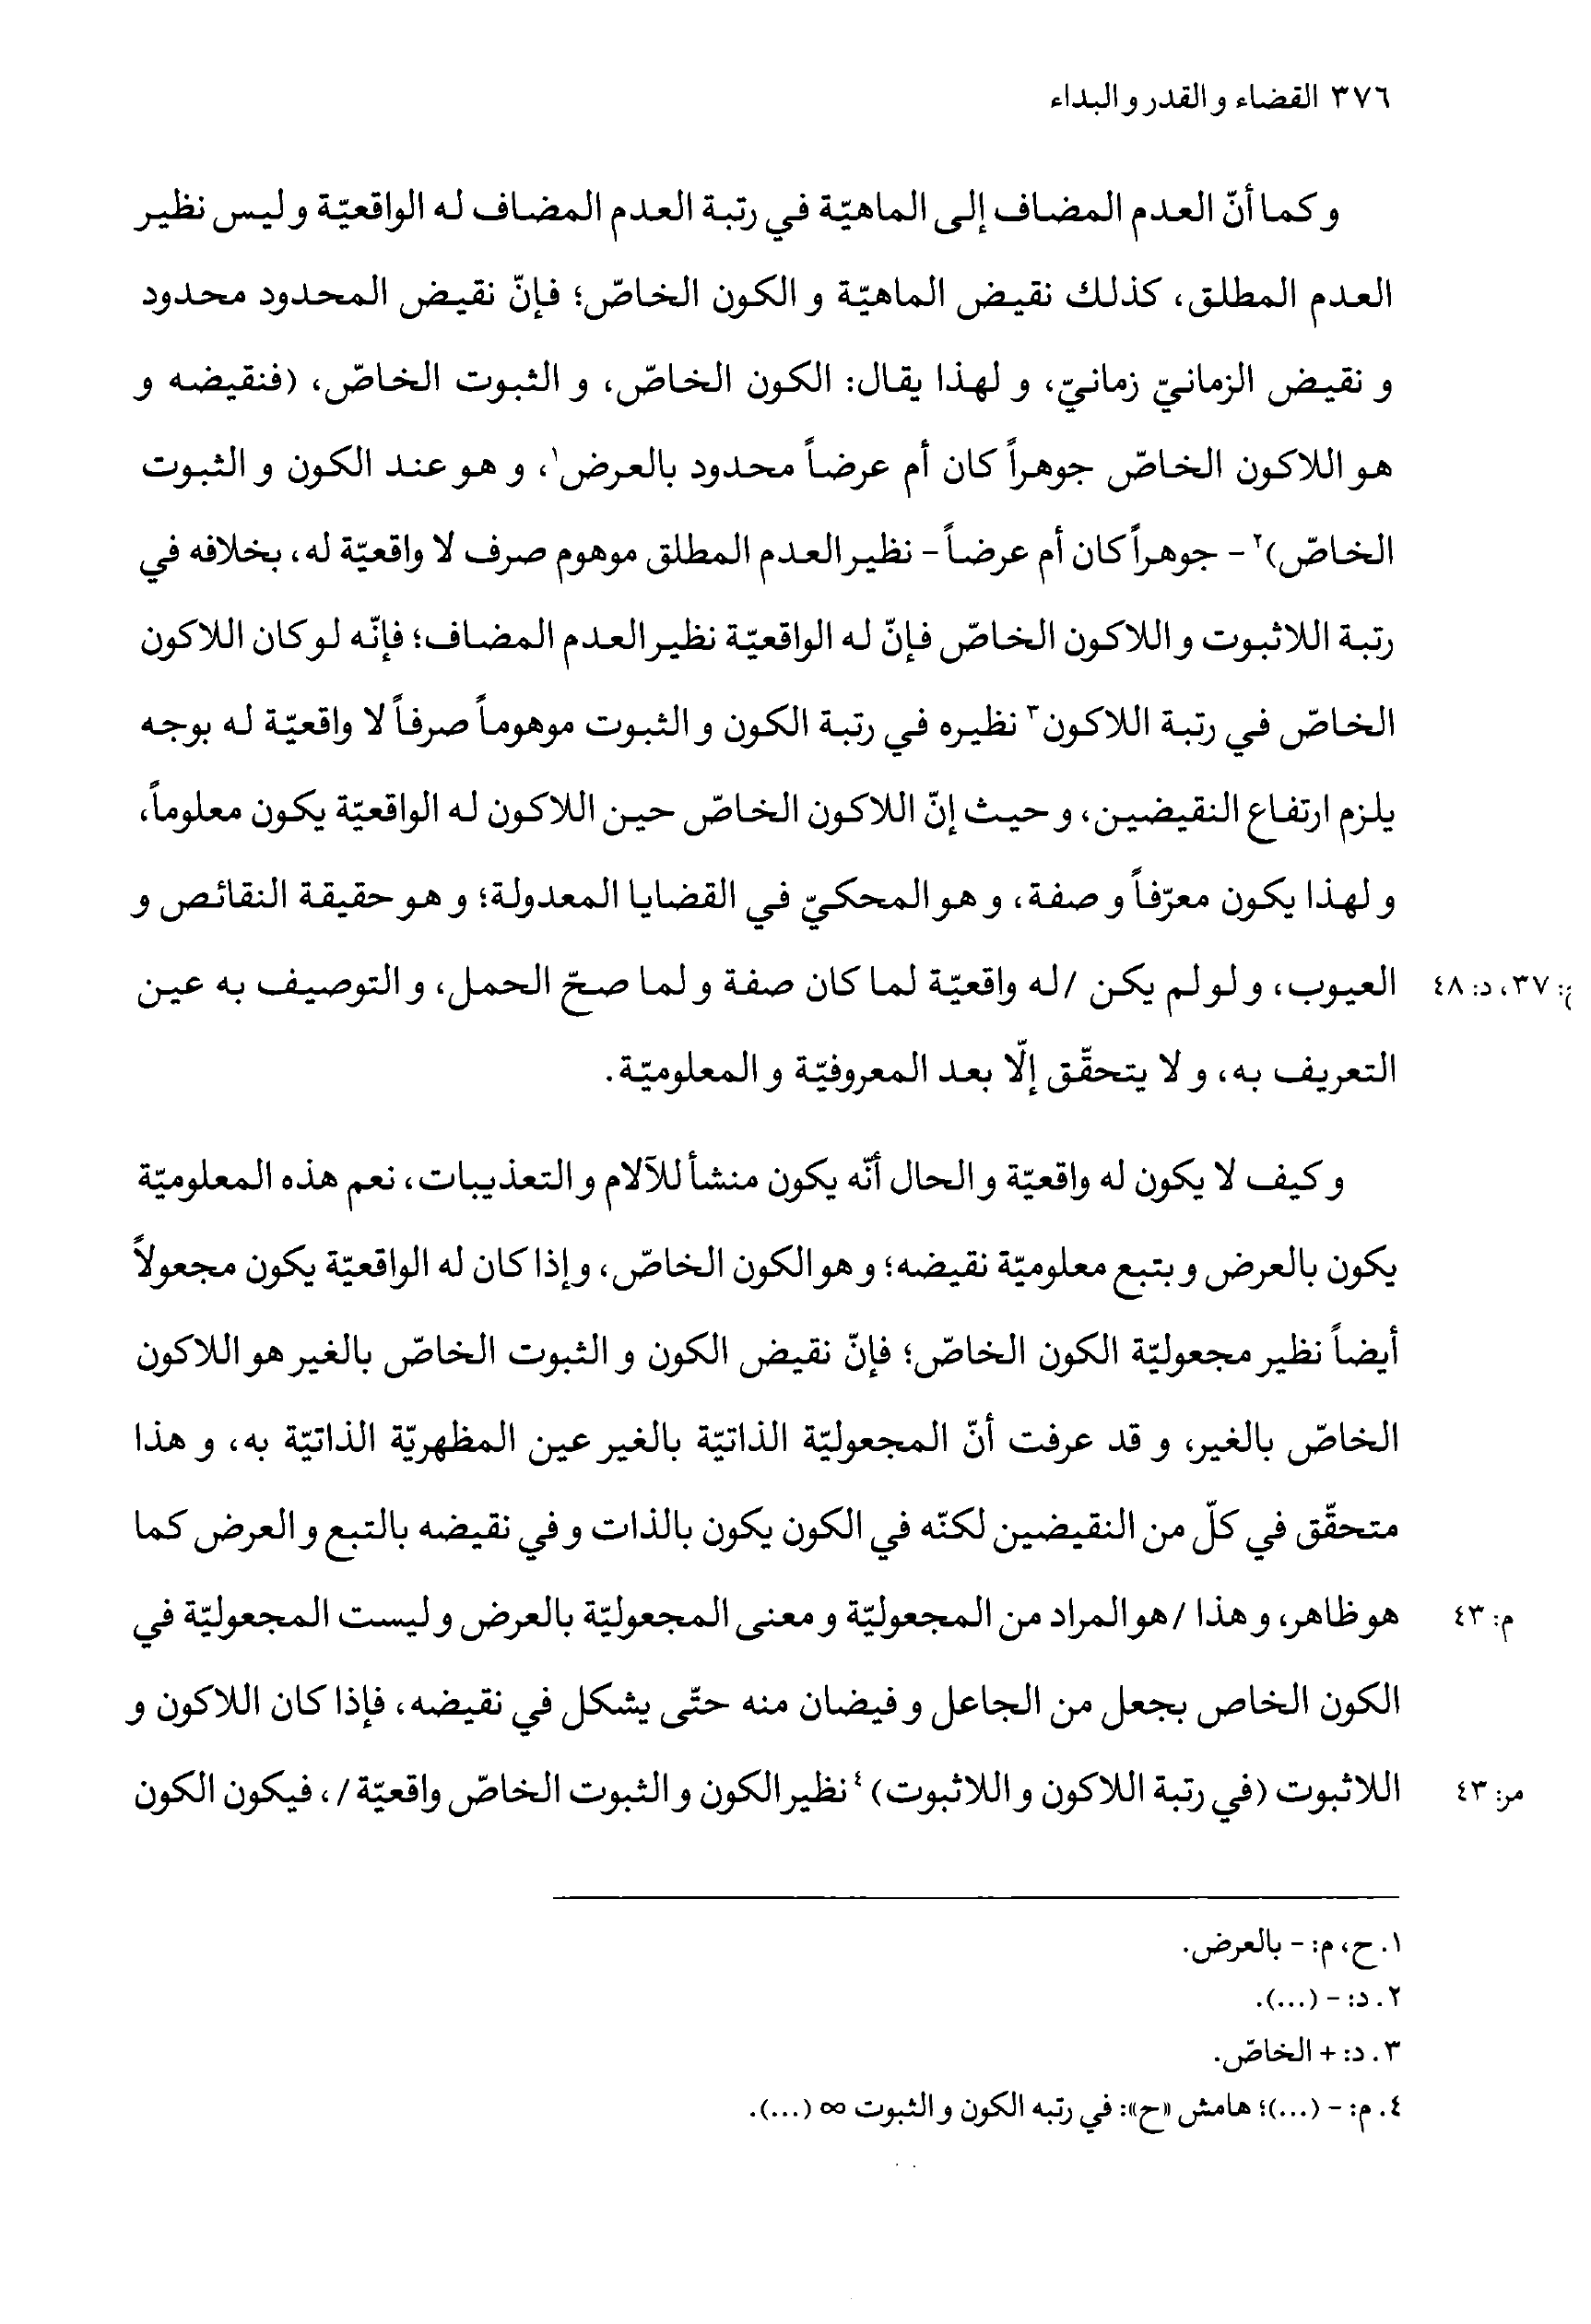 ٣٧٦ القضاء و القدر و البداء
و كما أنّ العدم المضاف إلى الماهيّة في رتبة العدم المضاف له الواقعيّة و ليس نظير
العدم المطلق، كذلك نقيض الماهيّة و الكون الخاصّ؛ فإنّ نقيض المحدود محدود
و نقيض الزمانيّ زمانيّ، و لهذا يقال: الكون الخاصّ، و الثبوت الخاصّ، (فنقيضه و
هو اللاكون الخاصّ جوهراً كان أم عرضاً محدود بالعرض١، و هو عند الكون و الثبوت
الخاصّ)٢ - جوهراً كان أم عرضاً - نظير العدم المطلق موهوم صرف لا واقعيّة له، بخلافه في
رتبة اللاثبوت و اللاكون الخاصّ فإنّ له الواقعيّة نظير العدم المضاف؛ فإنّه لو كان اللاكون
الخاصّ في رتبة اللاكون٣ نظيره في رتبة الكون و الثبوت موهوماً صرفاً لا واقعيّة له بوجه
يلزم ارتفاع النقيضين، و حيث إنّ اللاكون الخاصّ حين اللاكون له الواقعيّة يكون معلوماً،
و لهذا يكون معرّفاً و صفة، و هو المحكيّ في القضايا المعدولة؛ و هو حقيقة النقائص و
العيوب، و لو لم يكن /له واقعيّة لما كان صفة و لما صحّ الحمل، و التوصيف به عين
ح: ٣٧، د: ٤٨
التعريف به، و لا يتحقّق إلّا بعد المعروفيّة و المعلوميّة.
و كيف لا يكون له واقعيّة و الحال أنّه يكون منشأ للآلام و التعذيبات، نعم هذه المعلوميّة
يكون بالعرض و بتبع معلوميّة نقيضه؛ و هو الكون الخاصّ، و إذا كان له الواقعيّة يكون مجعولاً
أيضاً نظير مجعوليّة الكون الخاصّ؛ فإنّ نقيض الكون و الثبوت الخاصّ بالغير هو اللاكون
الخاصّ بالغير، و قد عرفت أنّ المجعوليّة الذاتيّة بالغير عين المظهريّة الذاتيّة به، و هذا
متحقّق في كلّ من النقيضين لكنّه في الكون يكون بالذات و في نقيضه بالتبع و العرض كما
هو ظاهر، و هذا /هو المراد من المجعوليّة و معنى المجعوليّة بالعرض و ليست المجعوليّة في
م: ٤٣
الكون الخاص بجعل من الجاعل و فيضان منه حتّى يشكل في نقيضه، فإذا كان اللاكون و
اللاثبوت (في رتبة اللاكون و اللاثبوت)٤ نظير الكون و الثبوت الخاصّ واقعيّة /، فيكون الكون
مر: ٤٣
١. ح، م: - بالعرض.
٢. د: - (...).
٣. د: + الخاصّ.
٤. م: - (...)؛ هامش «ح»: في رتبه الكون و الثبوت ∞ (...).